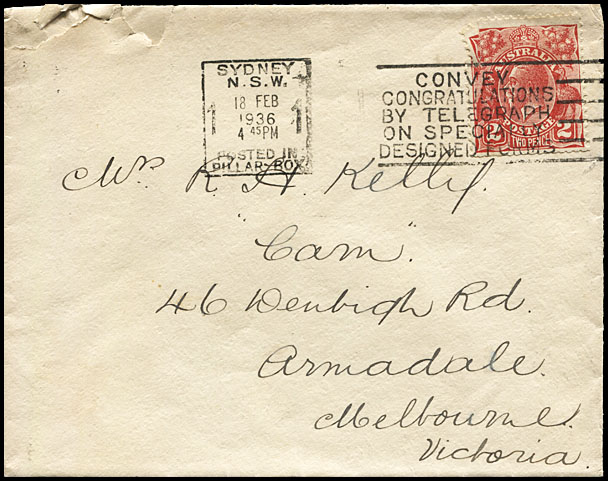 SYDNEY
N.S.W.
18 FEB
1936
4 45 PM
1 1
POSTED IN
PILLAR BOX
CONVEY
CONGRATULATIONS
BY TELEGRAPH
ON SPECIALLY
DESIGNED FORMS
AUSTRALIA
POSTAGE
2 2
TWO PENCE
Mr R A Kelly.
"Carn".
46 Denbigh Rd.
Armadale.
Melbourne.
Victoria.